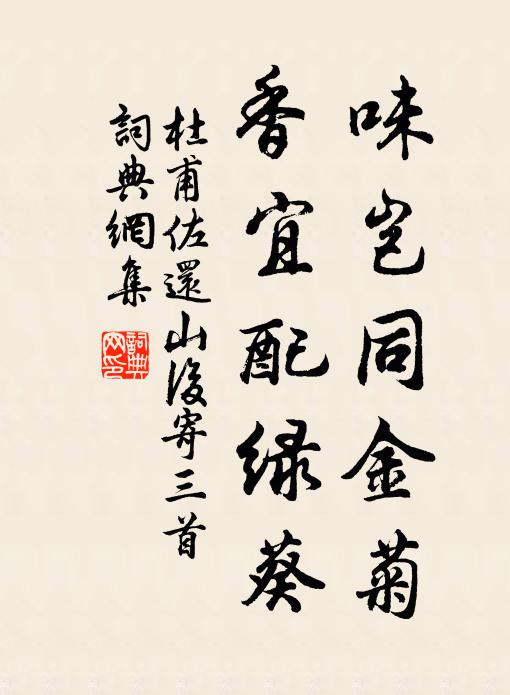 味岂同金菊
香宜配绿葵
杜甫佐還山後寄三首
詞典網集
詞典网印